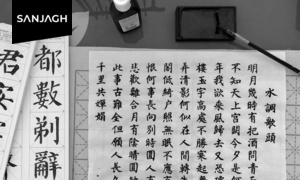 SANJAGH
水調歌頭
明月幾時有把酒問青
不知天上宮闕今夕是何
年我欲乘風歸去又恐瓊
樓玉宇高處不勝寒起舞
弄清影何似在人間轉朱
閣低綺戶照無眠不應有
恨何事長向別時圓人有
悲歡離合月有陰晴圓缺
此事古難全但願人長久
千里共嬋娟
都數剃辭
君